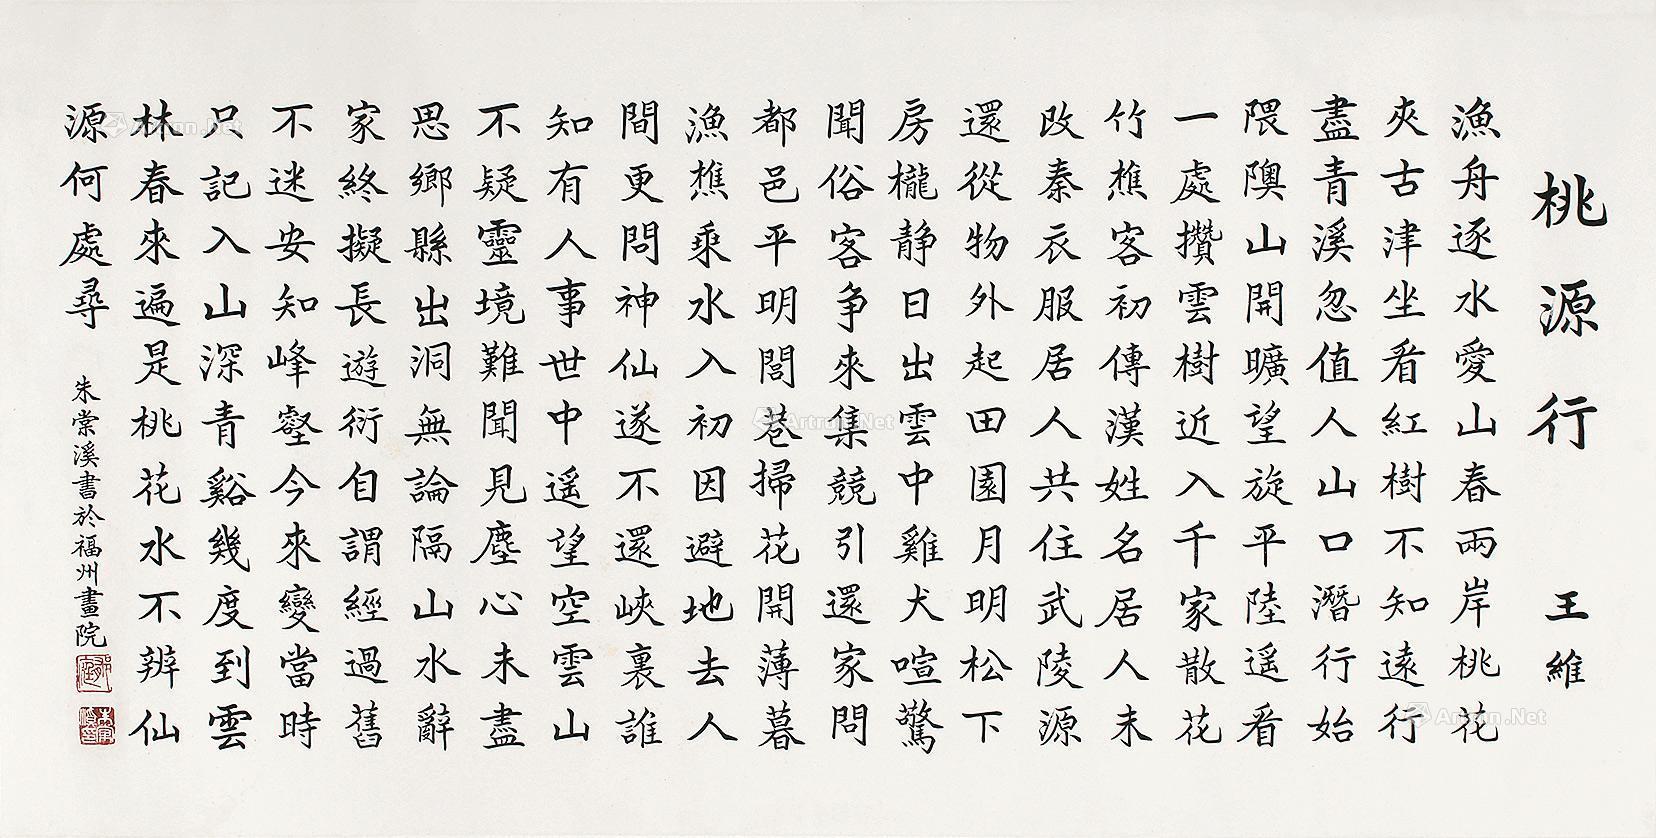 桃源行 王維
漁舟逐水愛山春兩岸桃花
夾古津坐看紅樹不知遠行
盡青溪忽值人山口潛行始
隈隩山開曠望旋平陸遥看
一處攢雲樹近入千家散花
竹樵客初傳漢姓名居人未
改秦衣服居人共住武陵源
還從物外起田園月明松下
房櫳静日出雲中雞犬喧驚
聞俗客争來集競引還家問
都邑平明閭巷掃花開薄暮
漁樵乘水入初因避地去人
間更問神仙遂不還峽裏誰
知有人事世中遥望空雲山
不疑靈境難聞見塵心未盡
思鄉縣出洞無論隔山水辭
家終擬長遊衍自謂經過舊
不迷安知峰壑今來變當時
只記入山深青谿幾度到雲
林春來遍是桃花水不辨仙
源何處尋
朱棠溪書於福州畫院
Artron.Net
Artron.Net
Artron.Net